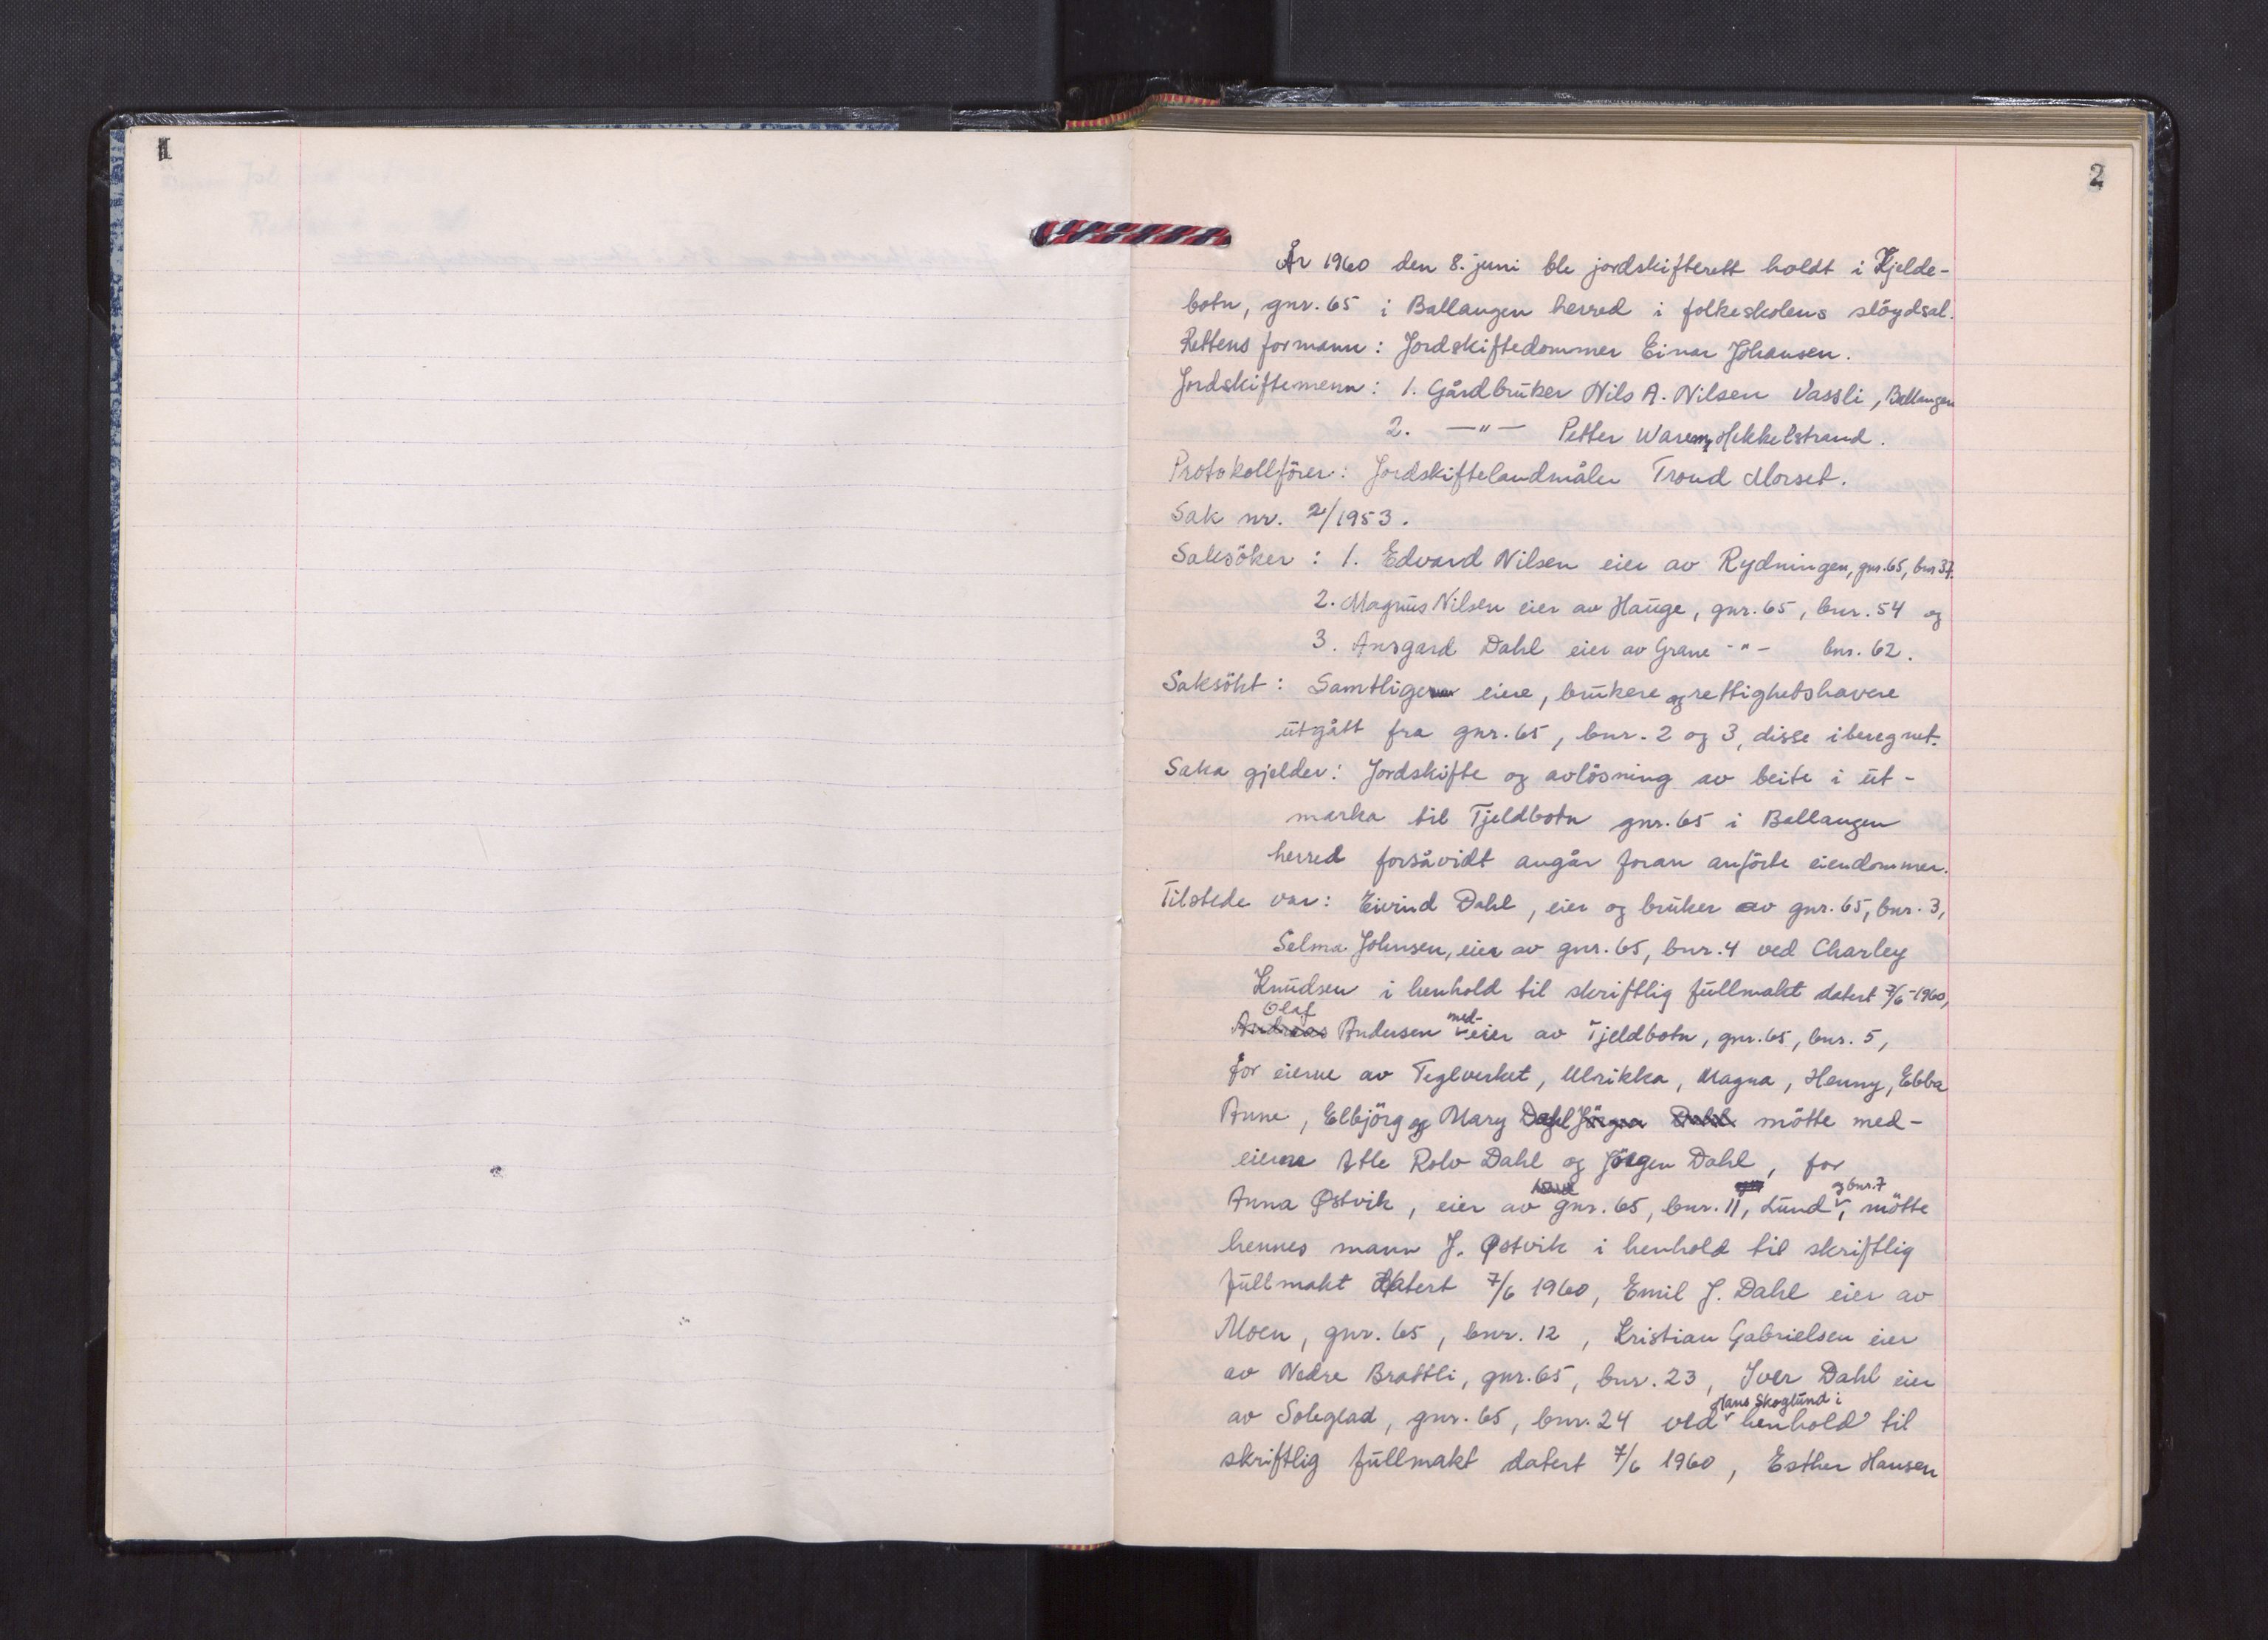 1
2
År 1960 den 8. juni ble jordskifterett holdt i Kjelde-
botn, gnr. 65 i Ballangen herred i folkeskolens slöydsal.
Rettens formann: Jordskiftedommer Einar Johansen.
Jordskiftemenn: 1. Gårdbruker Nils A. Nilsen Vassli, Ballangen
2. —"— Petter Warem, Hekkelstrand.
Protokollförer: Jordskiftelandmåler Trond Morset.
Sak nr. 2/1953.
Saksöker: 1. Edvard Nilsen eier av Rydningen, gnr. 65, bnr 37.
2. Magnus Nilsen eier av Hauge, gnr. 65, bnr. 54 og
3. Ansgard Dahl eier av Grane -"- bnr. 62.
Saksökt: Samtlige eiere, brukere og rettighetshavere
utgått fra gnr. 65, bnr. 2 og 3, disse iberegnet.
Saka gjelder: Jordskifte og avlösning av beite i ut-
marka til Tjeldbotn gnr. 65 i Ballangen
herred forsåvidt angår foran anförte eiendommer.
Tilstede var: Eivind Dahl, eier og bruker av gnr. 65, bnr. 3,
Selma Johnsen, eier av gnr. 65, bnr. 4 ved Charley
Knudsen i henhold til skriftlig fullmakt datert 7/6-1960,
Olaf
Andreas Andersen med-eier av Tjeldbotn, gnr. 65, bnr. 5,
for eierne av Teglverket, Ulrikka, Magna, Henny, Ebba
Anne, Elbjörg og Mary Dahl Jörgen Dahl mötte med-
eierne Atle Rolv Dahl og Jörgen Dahl, for
Anna Østvik, eier av gnr. 65, bnr. 11, Lund og bnr. 7, mötte
hennes mann J. Østvik i henhold til skriftlig
fullmakt datert 7/6 1960, Emil J. Dahl eier av
Moen, gnr. 65, bnr. 12, Kristian Gabrielsen eier
av Nedre Brattli, gnr. 65, bnr. 23, Iver Dahl eier
av Soleglad, gnr. 65, bnr. 24 ved Hans Skoglund i henhold til
skriftlig fullmakt datert 7/6 1960, Esther Hansen